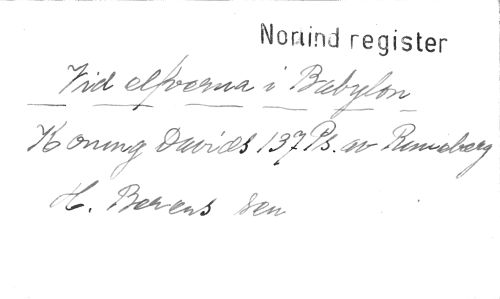 Norrind register
Vid elfverna i Babylon
Koning Davids 137 Ps. av Runeberg
H. Berens sen